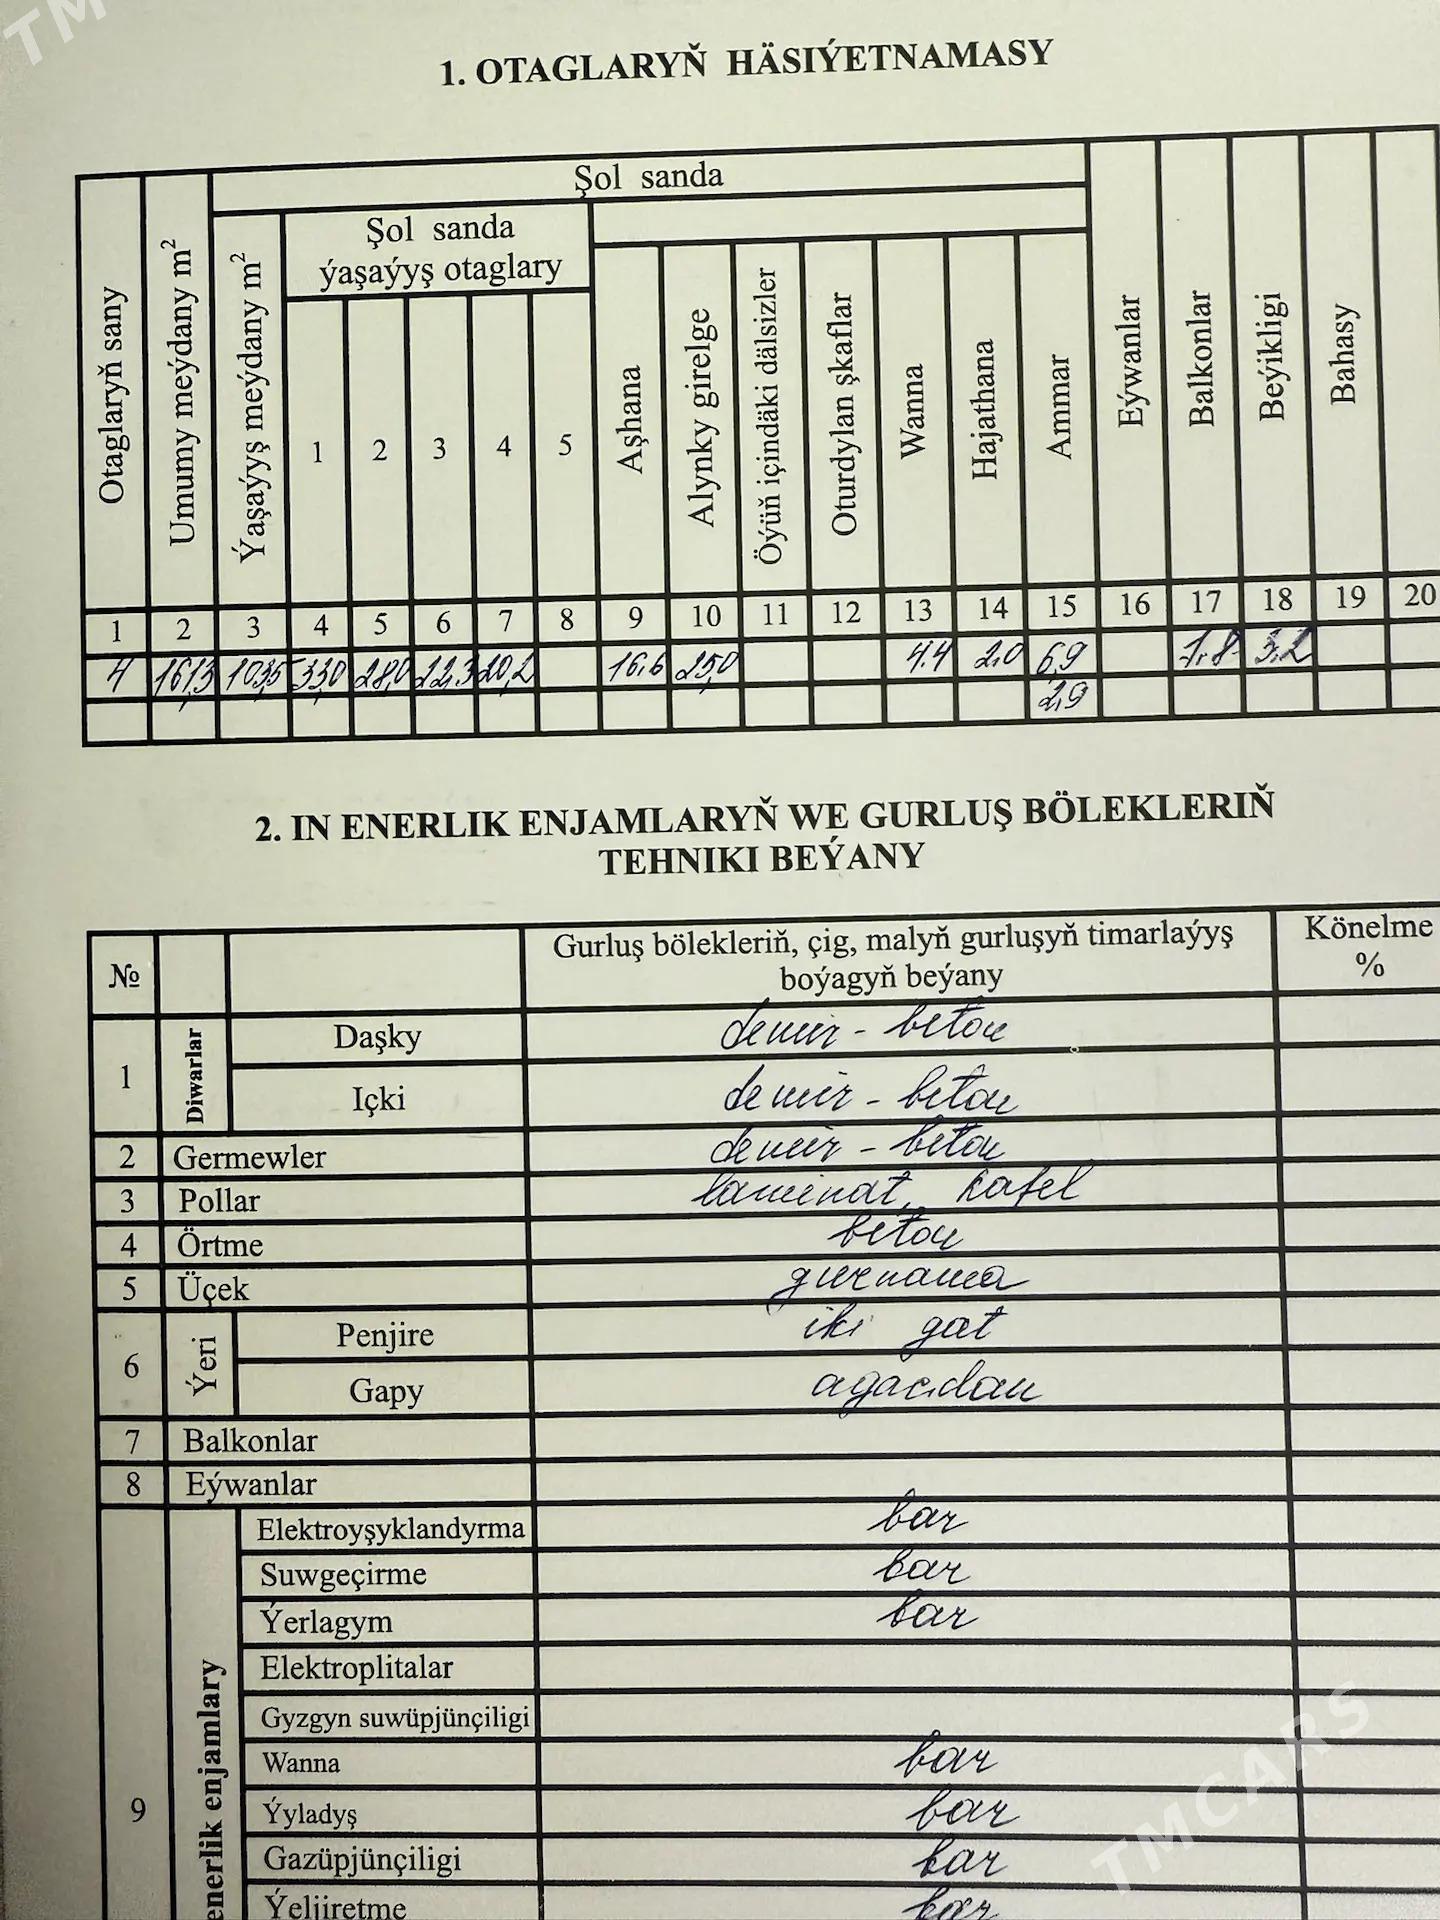 TM
1. OTAGLARYŇ HÄSIÝETNAMASY
Şol sanda
Şol sanda
ýaşaýyş otaglary
Otaglaryň sany
Umumy meýdany m²
Ýaşaýyş meýdany m²
1 2 3 4 5
Aşhana
Alynky girelge
Öýüň içindäki dälsizler
Oturdylan şkaflar
Wanna
Hajathana
Ammar
Eýwanlar
Balkonlar
Beýikligi
Bahasy
1 2 3 4 5 6 7 8 9 10 11 12 13 14 15 16 17 18 19 20
4 161,3 103,5 33,0 28,0 22,3 20,2 16,6 25,0 4.4 2,0 6,9 1,8 3,2
2,9
2. IN ENERLIK ENJAMLARYŇ WE GURLUŞ BÖLEKLERIŇ
TEHNIKI BEÝANY
№ Gurluş bölekleriň, çig, malyň gurluşyň timarlaýyş
boýagyň beýany
Könelme
%
1 Diwarlar Daşky demir-beton
Içki demir-beton
2 Germewler demir-beton
3 Pollar laminat, kafel
4 Örtme beton
5 Üçek gurnama
6 Ýeri Penjire iki gat
Gapy agaçdan
7 Balkonlar
8 Eýwanlar
9 enerlik enjamlary
Elektroyşyklandyrma bar
Suwgeçirme bar
Ýerlagym bar
Elektroplitalar
Gyzgyn suwüpjünçiligi
Wanna bar
Ýyladyş bar
Gazüpjünçiligi bar
Ýeljiretme bar
TMCARS